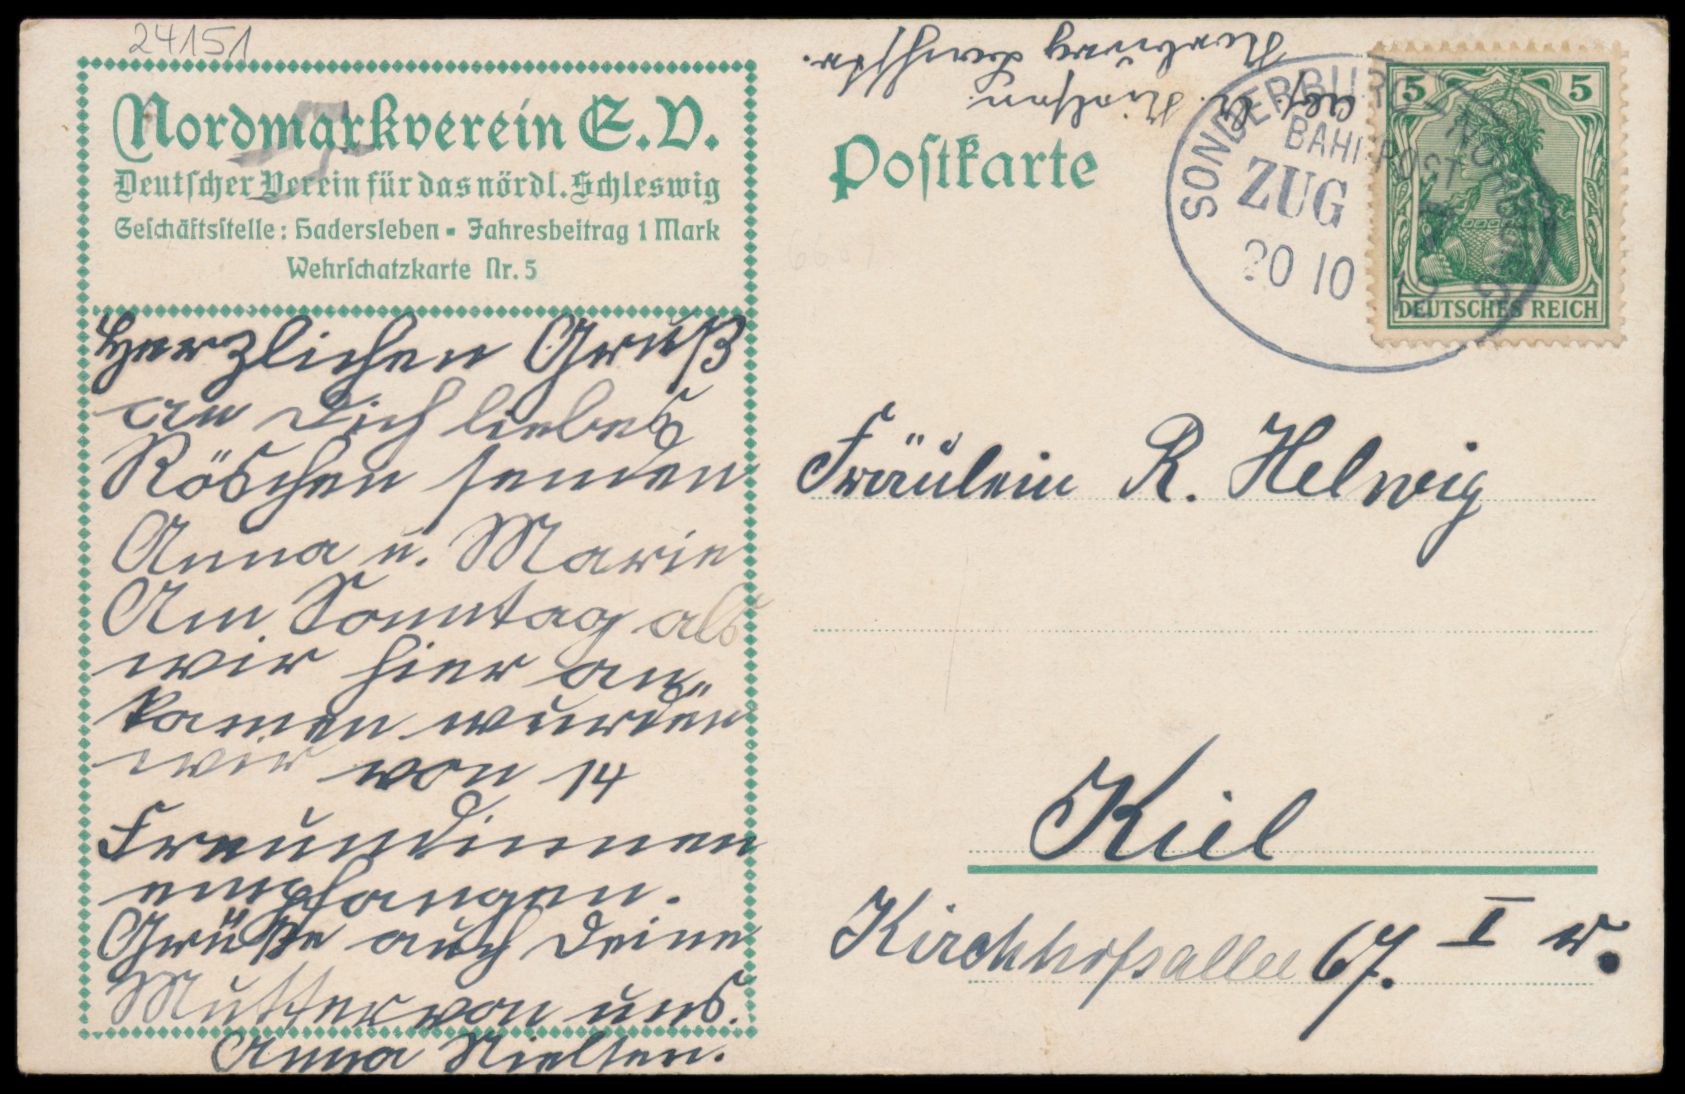 24151
Nordmarkverein E.V.
Deutscher Verein für das nördl. Schleswig
Geschäftsstelle: Hadersleben - Jahresbeitrag 1 Mark
Wehrschatzkarte Nr. 5
Herzlichen Gruß
an Dich liebes
Röschen senden
Anna u. Marie
Am Sonntag als
wir hier an„
kamen wurden
wir von 14
Freundinnen
empfangen.
Grüße auch Deine
Mutter von uns.
Anna Nielsen.
Abs. A. Nielsen
Norburg
Postkarte
SONDERBURG - NORDBURG
BAHNPOST
ZUG
20 10
5 5
DEUTSCHES REICH
Fräulein R. Helwig
Kiel
Kirchhofsallee 67. I r.